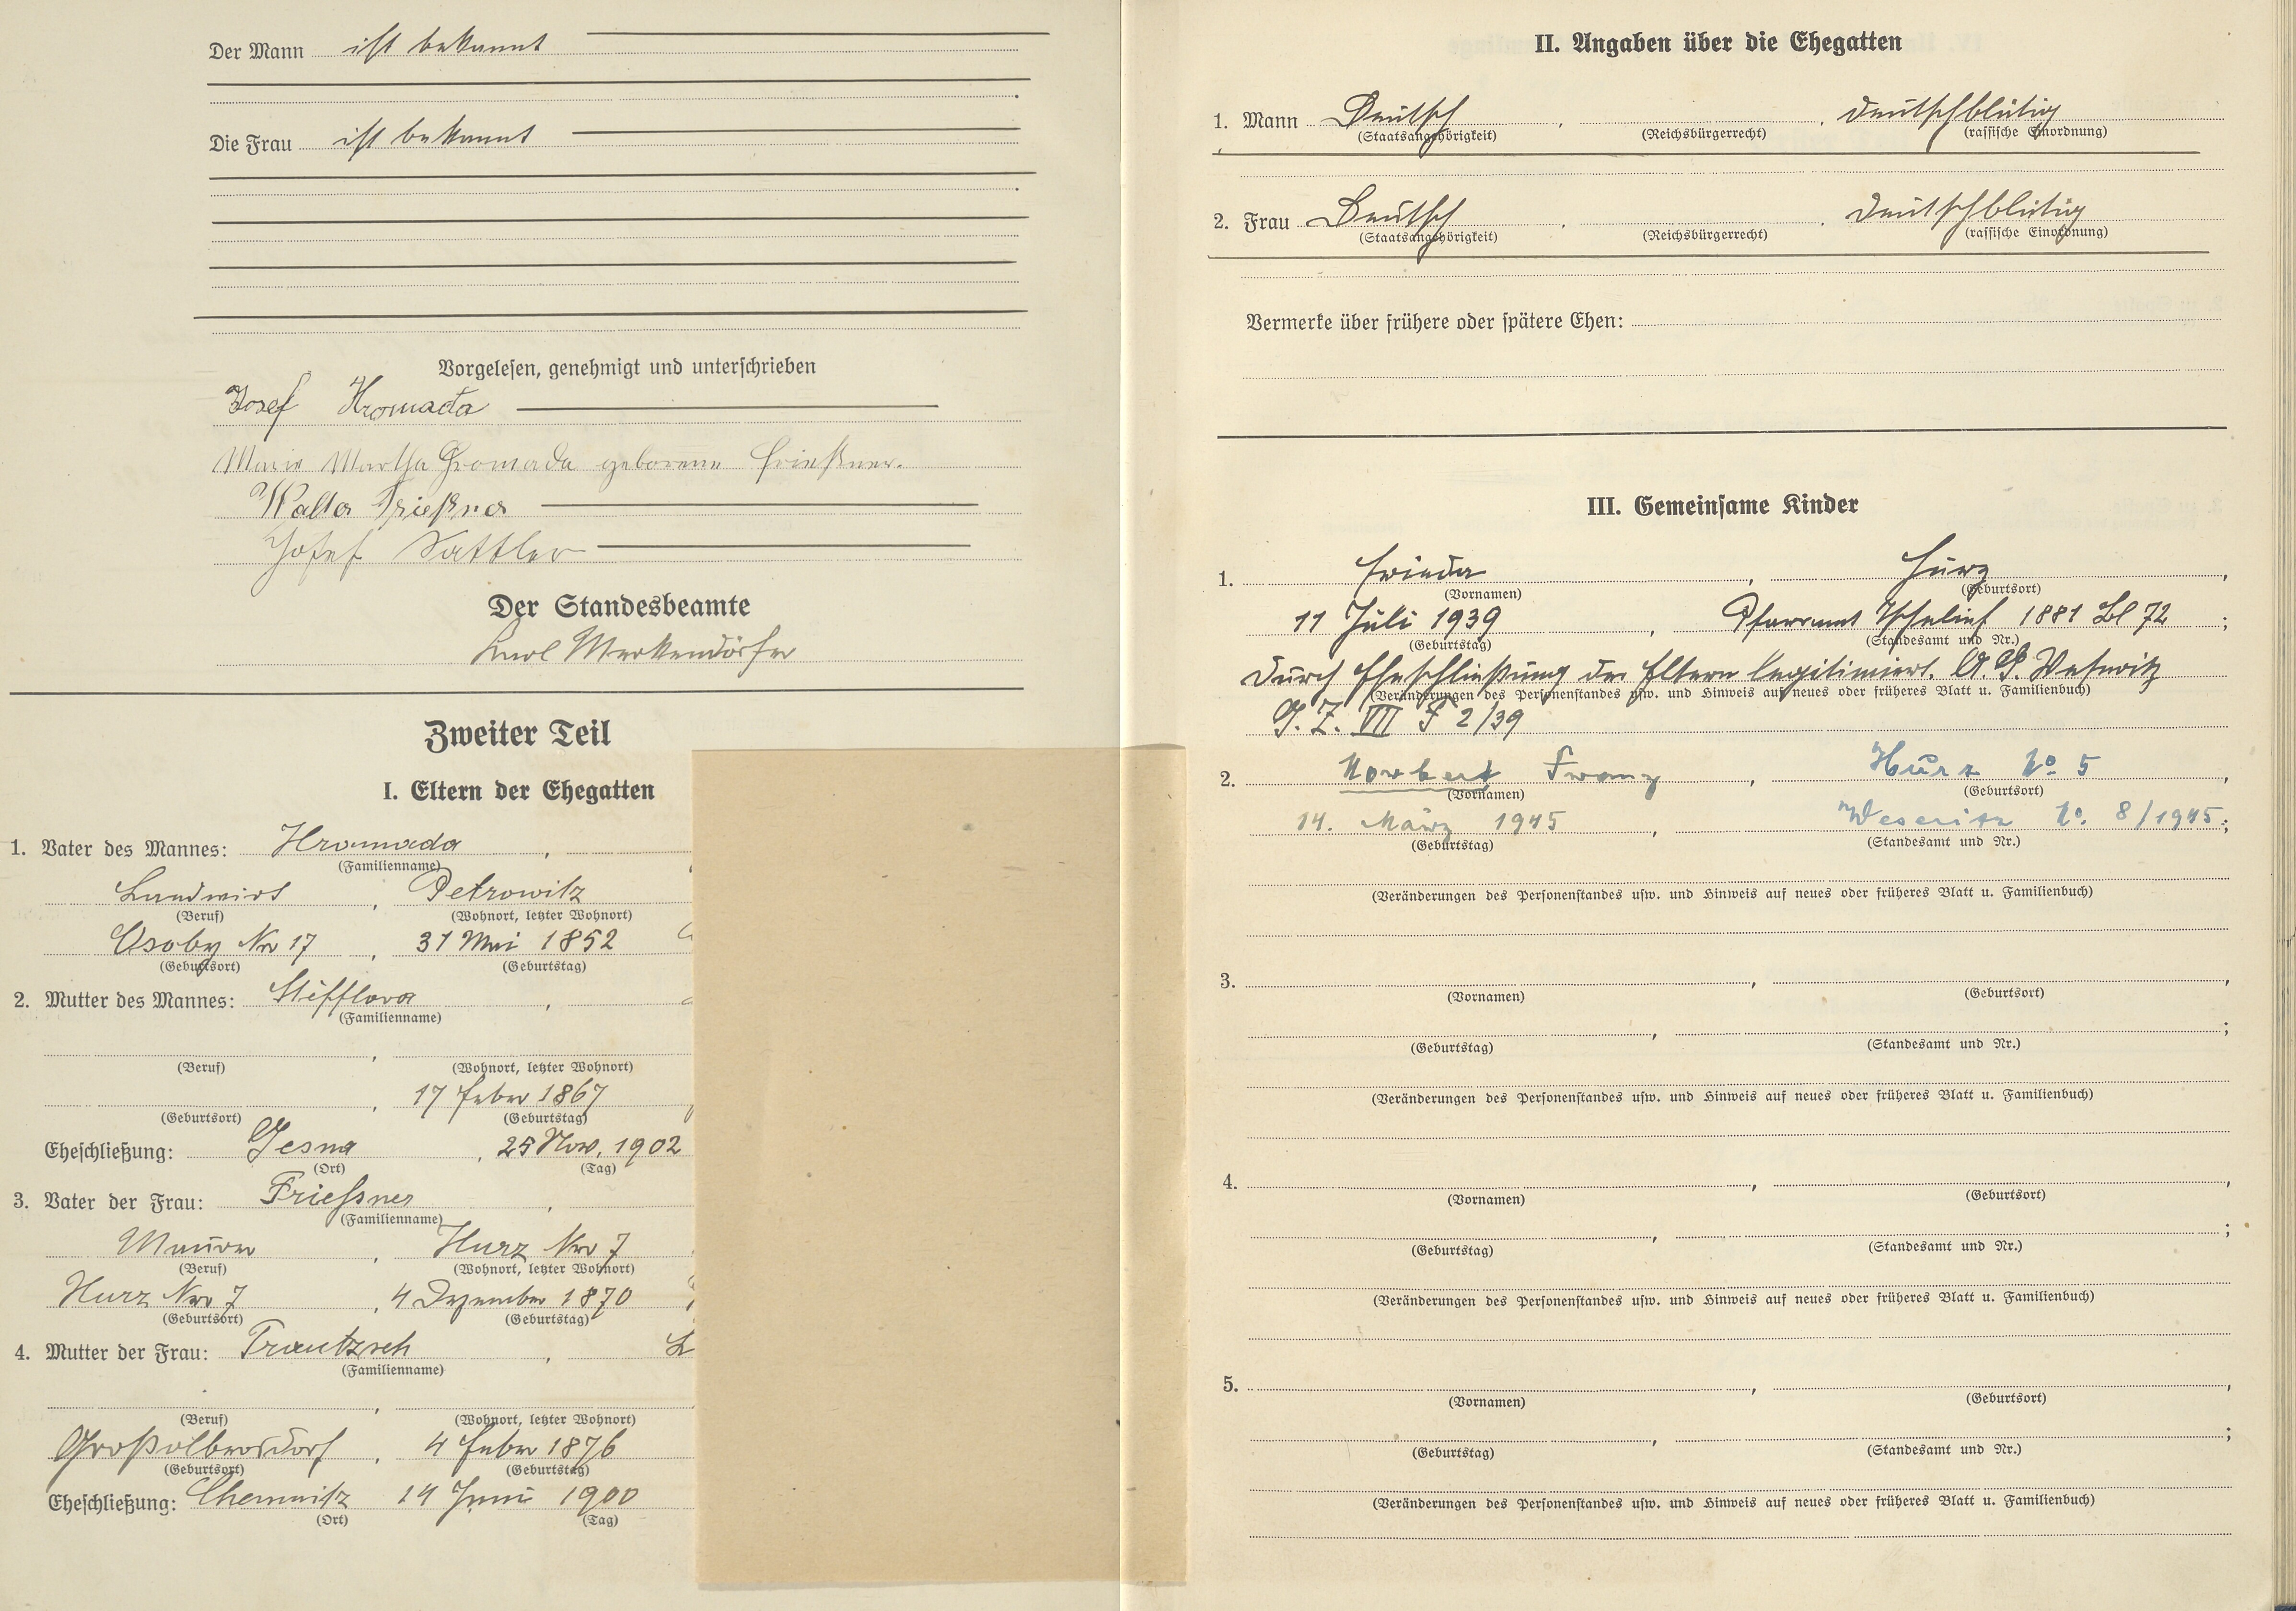 Der Mann ist bekannt
Die Frau ist bekannt
Vorgelesen, genehmigt und unterschrieben
Josef Hromada
Marie Martha Hromada geborene Frießner.
Walter Frießner
Josef Sattler
Der Standesbeamte
Karl Merkendörfer
Zweiter Teil
I. Eltern der Ehegatten
1. Vater des Mannes: Hromada ,
(Familienname)
Landwirt , Petrowitz
(Beruf) (Wohnort, letzter Wohnort)
Osoby No 17 , 31 Mai 1852
(Geburtsort) (Geburtstag)
2. Mutter des Mannes: Stifflova ,
(Familienname)
,
(Beruf) (Wohnort, letzter Wohnort)
, 17 Feber 1867
(Geburtsort) (Geburtstag)
Eheschließung: Jesna , 25 Nov. 1902
(Ort) (Tag)
3. Vater der Frau: Friessner ,
(Familienname)
Maurer , Hurz No 7
(Beruf) (Wohnort, letzter Wohnort)
Hurz No 7 , 4 Dezember 1870
(Geburtsort) (Geburtstag)
4. Mutter der Frau: Trautzsch ,
(Familienname)
,
(Beruf) (Wohnort, letzter Wohnort)
Großolbersdorf , 4 Feber 1876
(Geburtsort) (Geburtstag)
Eheschließung: Chemnitz 14 Juni 1900
(Ort) (Tag)
II. Angaben über die Ehegatten
1. Mann Deutsch , , deutschblütig
(Staatsangehörigkeit) (Reichsbürgerrecht) (rassische Einordnung)
2. Frau Deutsch , , deutschblütig
(Staatsangehörigkeit) (Reichsbürgerrecht) (rassische Einordnung)
Vermerke über frühere oder spätere Ehen:
III. Gemeinsame Kinder
1. Frieda , Hurz ,
(Vornamen) (Geburtsort)
11 Juli 1939 , Pfarramt Tschelief 1881 Bl 72 ;
(Geburtstag) (Standesamt und Nr.)
Durch Eheschließung der Eltern legitimiert. A. G. Weseritz
(Veränderungen des Personenstandes usw. und Hinweis auf neues oder früheres Blatt u. Familienbuch)
G. Z. VII P 2/39
2. Norbert Franz , Hurz No 5 ,
(Vornamen) (Geburtsort)
14. März 1945 , Weseritz No. 8/1945 ;
(Geburtstag) (Standesamt und Nr.)
(Veränderungen des Personenstandes usw. und Hinweis auf neues oder früheres Blatt u. Familienbuch)
3. , ,
(Vornamen) (Geburtsort)
, ;
(Geburtstag) (Standesamt und Nr.)
(Veränderungen des Personenstandes usw. und Hinweis auf neues oder früheres Blatt u. Familienbuch)
4. , ,
(Vornamen) (Geburtsort)
, ;
(Geburtstag) (Standesamt und Nr.)
(Veränderungen des Personenstandes usw. und Hinweis auf neues oder früheres Blatt u. Familienbuch)
5. , ,
(Vornamen) (Geburtsort)
, ;
(Geburtstag) (Standesamt und Nr.)
(Veränderungen des Personenstandes usw. und Hinweis auf neues oder früheres Blatt u. Familienbuch)